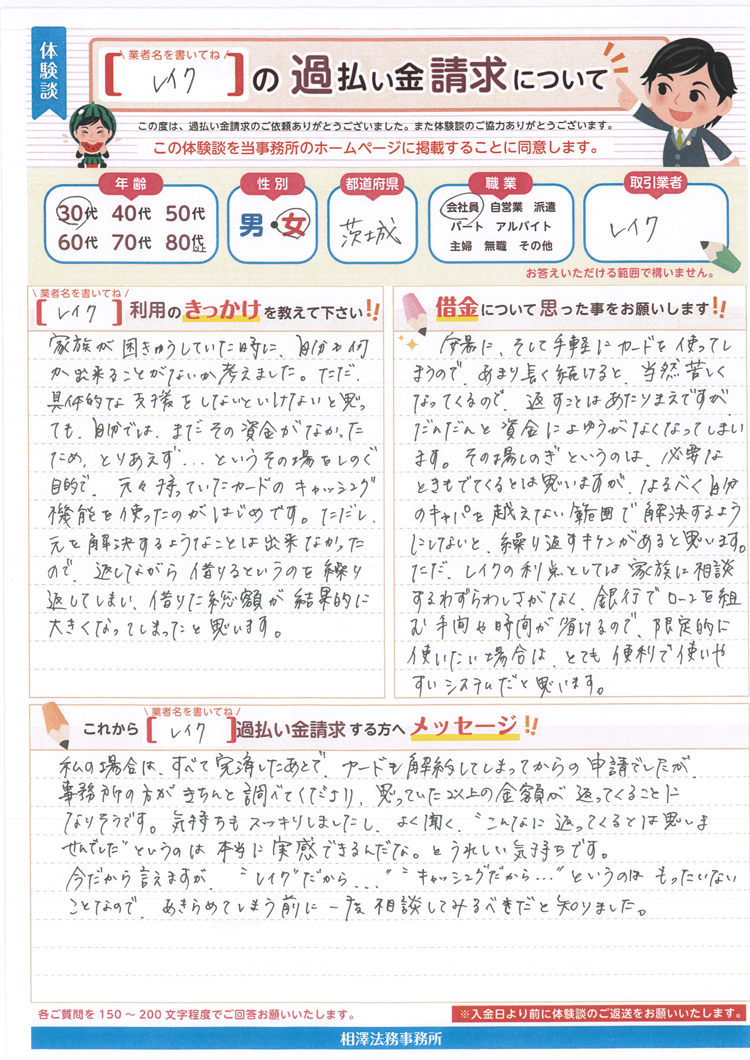 体験談
業者名を書いてね
[レイク]の過払い金請求について
この度は、過払い金請求のご依頼ありがとうございました。また体験談のご協力ありがとうございます。
この体験談を当事務所のホームページに掲載することに同意します。
年齢
30代 40代 50代
60代 70代 80代以上
性別
男・女
都道府県
茨城
職業
会社員 自営業 派遣
パート アルバイト
主婦 無職 その他
取引業者
レイク
お答えいただける範囲で構いません。
業者名を書いてね
[レイク]利用のきっかけを教えて下さい!!
家族が困きゅうしていた時に、自分も何
か出来ることがないか考えました。ただ、
具体的な支援をしないといけないと思っ
ても、自分では、まだその資金がなかった
ため、とりあえず…というその場をしのぐ
目的で、元々持っていたカードのキャッシング
機能を使ったのがはじめです。ただし、
元を解決するようなことは出来なかった
ので、返しながら借りるというのを繰り
返してしまい、借りた総額が結果的に
大きくなってしまったと思います。
借金について思った事をお願いします!!
安易に、そして手軽にカードを使ってし
まうので、あまり長く続けると、当然苦しく
なってくるので、返すことはあたりまえですが、
だんだんと資金によゆうがなくなってしまい
ます。その場しのぎというのは、必要な
ときもでてくるとは思いますが、なるべく自分
のキャパを越えない範囲で解決するよう
にしないと、繰り返すキケンがあると思います。
ただ、レイクの利点としては家族に相談
するわずらわしさがなく、銀行でローンを組
む手間や時間が省けるので、限定的に
使いたい場合は、とても便利で使いや
すいシステムだと思います。
業者名を書いてね
これから[レイク]過払い金請求する方へメッセージ!!
私の場合は、すべて完済したあとで、カードも解約してしまってからの申請でしたが、
事務所の方がきちんと調べてくださり、思っていた以上の金額が返ってくることに
なりそうです。気持ちもスッキリしましたし、よく聞く、"こんなに返ってくるとは思いま
せんでした"というのは本当に実感できるんだな。とうれしい気持ちです。
今だから言えますが、"レイクだから…""キャッシングだから…"というのはもったいない
ことなので、あきらめてしまう前に一度相談してみるべきだと知りました。
各ご質問を150～200文字程度でご回答お願いいたします。
※入金日より前に体験談のご返送をお願いいたします。
相澤法務事務所